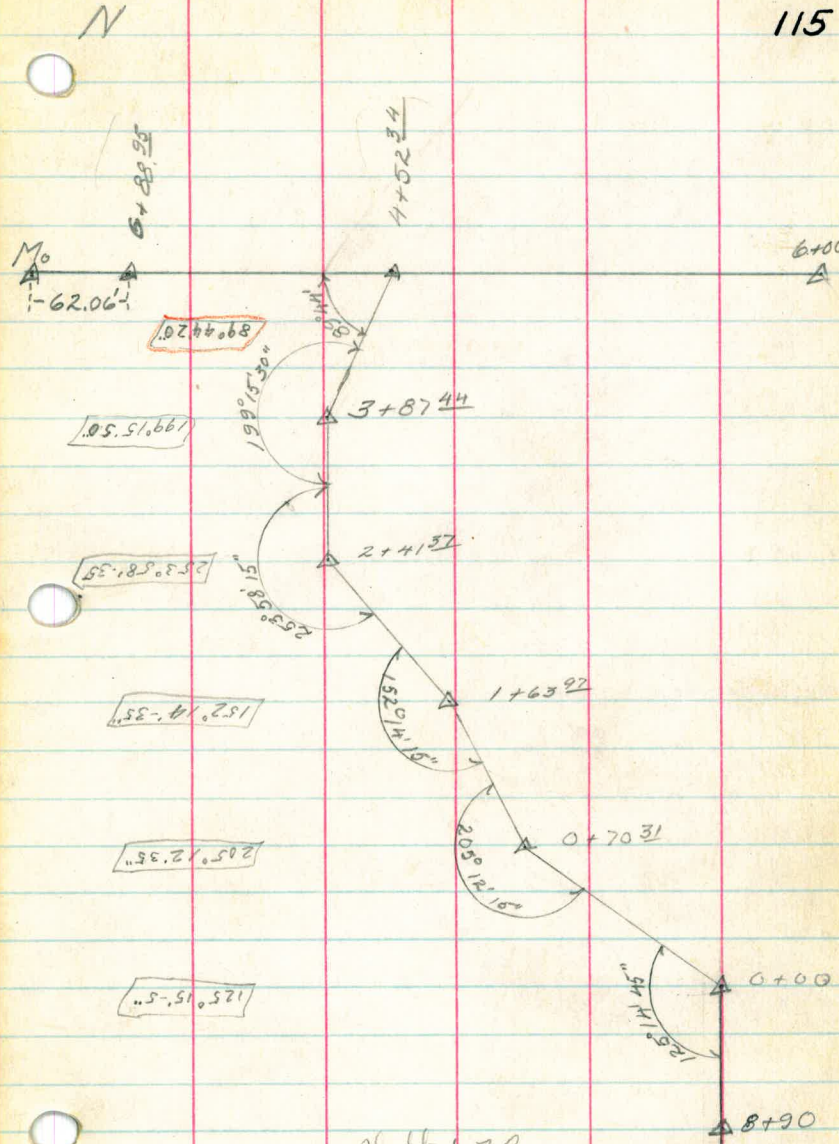 N
115
6+88.95
4+52 34
Mo
6+00
-62.06'-
89°44'20"
89°44'
199°15'30"
3+87 44
199°15'50"
2+41 37
253°58'-35"
253°58'15"
1+63 97
152°14'15"
152°14'-35"
0+70 31
205°12'35"
205°12'15"
0+00
125°14'45"
125°15'-5"
8+90